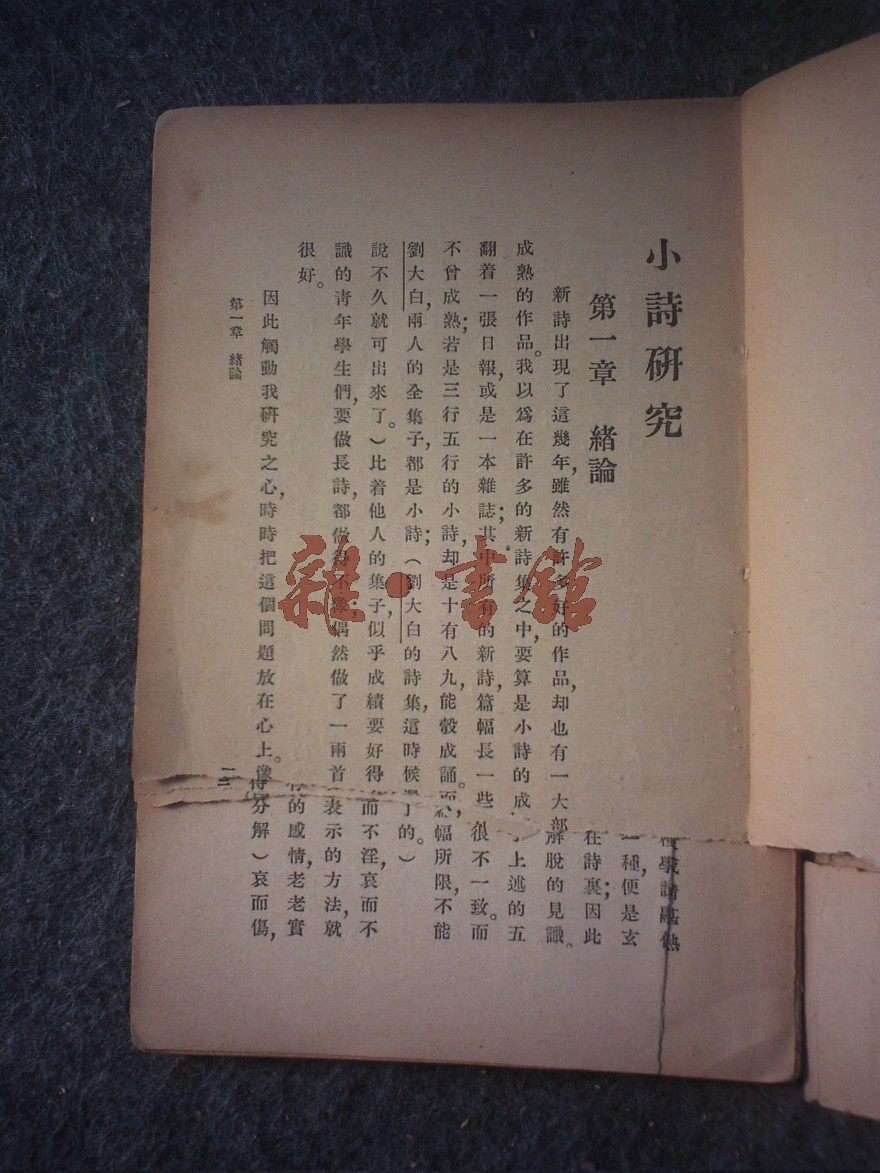 小詩研究
第一章 緒論
新詩出現了這幾年,雖然有許多好的作品,却也有一大部
成熟的作品。我以爲在許多的新詩集之中,要算是小詩的成
翻着一張日報,或是一本雜誌;其中所有的新詩,篇幅長一些
不曾成熟;若是三行五行的小詩,却是十有八九,能彀成誦。
劉大白,兩人的全集子,都是小詩;(劉大白的詩集這時候
說不久就可出來了。)比着他人的集子,似乎成績要好得
識的青年學生們,要做長詩,都做得不像;偶然做了一兩首
很好。
因此觸動我研究之心,時時把這個問題放在心上。像
第一章 緒論
一種,便是玄
在詩裏;因此
解脫的見識。
上述的五
很不一致。而
幅所限,不能
了的。)
而不淫,哀而不
表示的方法,就
的感情,老老實
得分解)哀而傷,
雜·書館